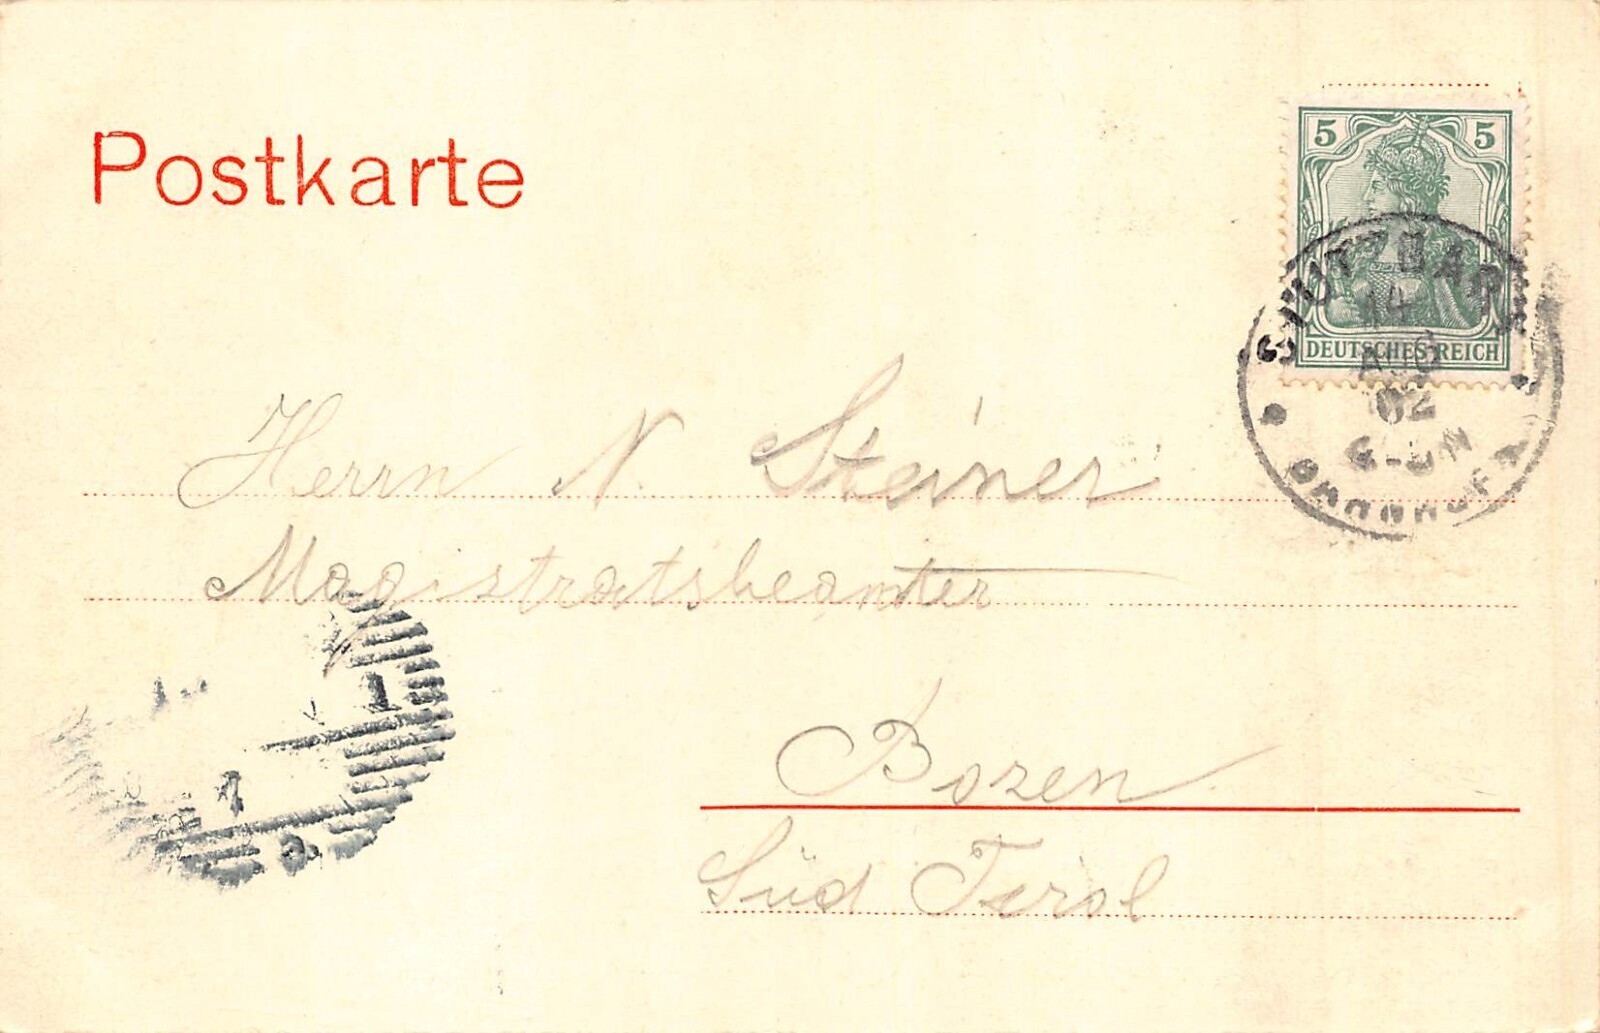 Postkarte
5 5
DEUTSCHES REICH
STUTTGART
14
AUG
02
BAHNHOF
Herrn N. Steiner
Magistratsbeamter
Bozen
Süd Tirol